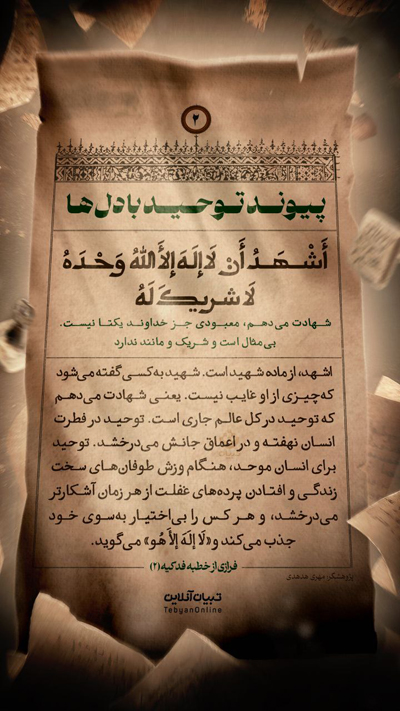 ۲
پیوند توحید با دل‌ها
أَشْهَدُ أَن لَا إِلَهَ إِلَّا اللهُ وَحْدَهُ
لَا شَرِیكَ لَهُ
شهادت می‌دهم، معبودی جز خداوند یکتا نیست.
بی‌مثال است و شریک و مانند ندارد
اشهد، از ماده شهید است. شهید به کسی گفته می‌شود
که چیزی از او غایب نیست. یعنی شهادت می‌دهم
که توحید در کل عالم جاری است. توحید در فطرت
انسان نهفته و در اعماق جانش می‌درخشد. توحید
برای انسان موحد، هنگام وزش طوفان‌های سخت
زندگی و افتادن پرده‌های غفلت از هر زمان آشکارتر
می‌درخشد، و هر کس را بی‌اختیار به‌سوی خود
جذب می‌کند و «لَا إِلَهَ إِلَّا هُو» می‌گوید.
فرازی از خطبه فدکیه (۲)
پژوهشگر: مهری هدهدی
تبیان آنلاین
TebyanOnline